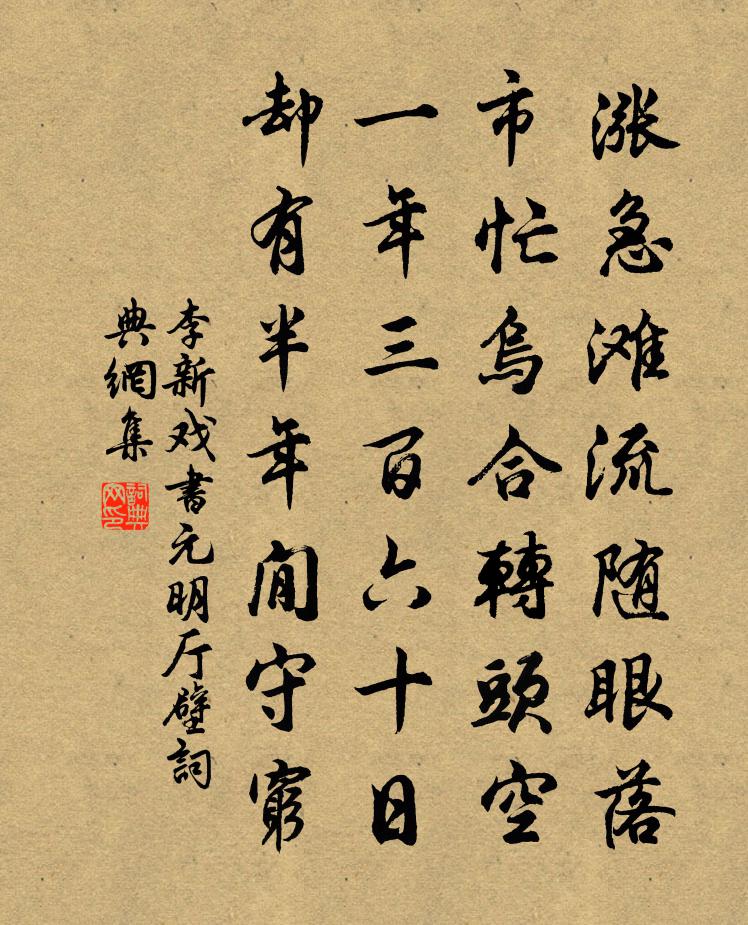 漲急滩流随眼落
市忙烏合轉頭空
一年三百六十日
却有半年閒守窮
李新戏書元明厅壁詞
典網集
詞典网印